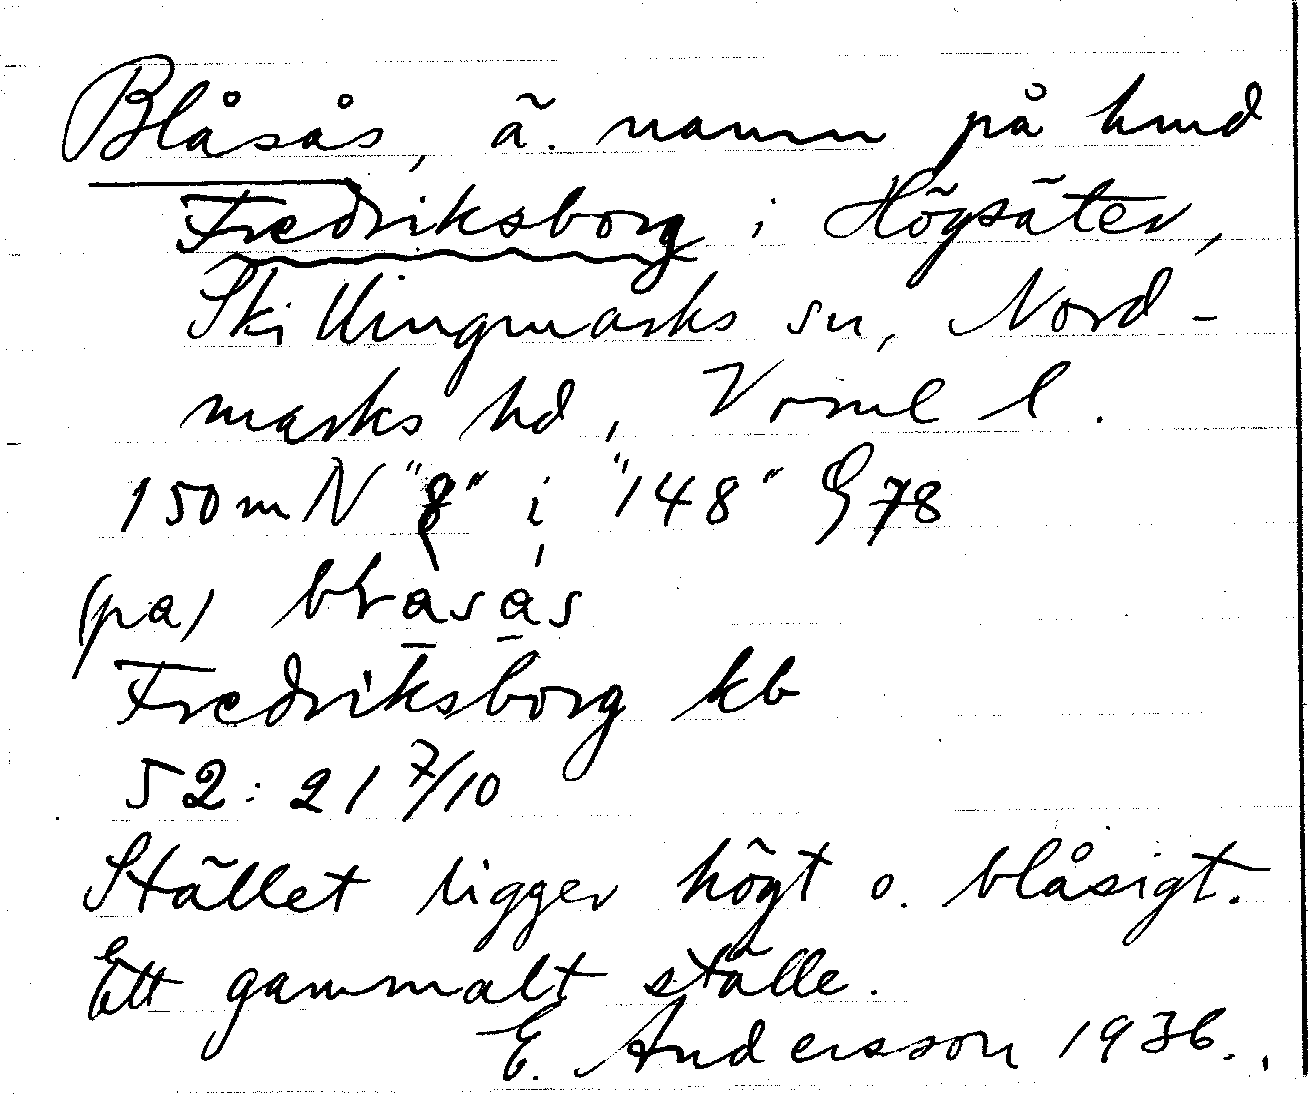 Blåsås, ä. namn på hmd
Fredriksborg i Högsäter,
Skillingmarks sn, Nord-
marks hd, Vrml l.
150 m N "8" i "148" G 78
(pa)
Fredriksborg kb
52:21 7/10
Stället ligger högt o. blåsigt.
Ett gammalt ställe.
E. Andersson 1936.